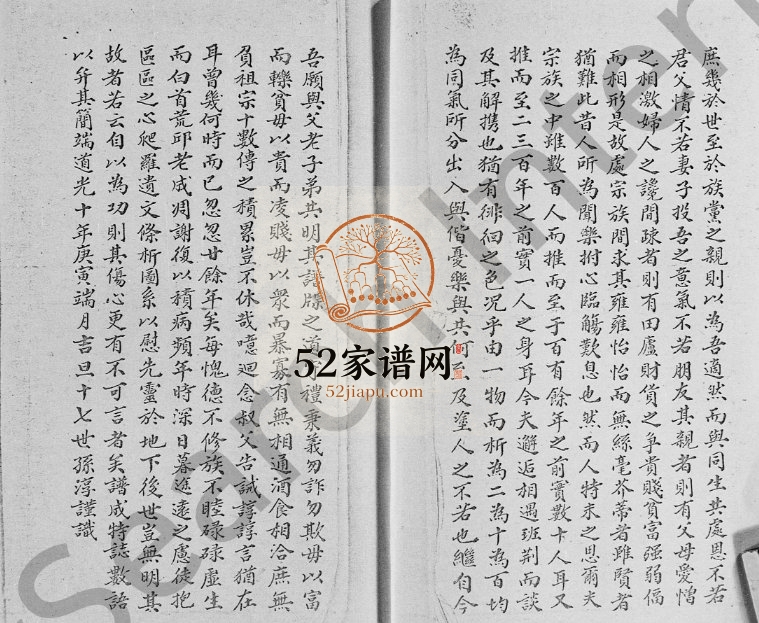 庶幾於世至於族黨之親則以為吾適然而與同生共處恩不若
君父情不若妻子投吾之意氣不若朋友其親者則有父母愛憎
之相激婦人之讒間疎者則有田廬財貨之爭貴賤貧富强弱偪
而相形是故處宗族間求其雍雍怡怡而無絲毫芥蒂者雖賢者
猶難此昔人所為聞樂拊心臨觴歎息也然而人特未之思爾夫
宗族之中雖數百人而推而至于百有餘年之前實數十人耳又
推而至二三百年之前實一人之身耳今夫邂逅相遇班荆而談
及其解攜也猶有徘徊之色况乎由一物而析為二為十為百均
為同氣所分出入與偕憂樂與共何 及塗人之不若也繼自今
吾願與父老子弟共明其譜牒之道 禮秉義勿詐勿欺毋以富
而轢貧毋以貴而凌賤毋以衆而暴寡有無相通酒食相洽庶無
負祖宗十數傳之積累豈不休哉噫迴念叔父告誡諄諄言猶在
耳曾幾何時而已忽忽廿餘年矣每愧德不修族不睦碌碌虛生
而白首荒邱老成凋謝復以積病頻年時深日暮途遠之慮徒抱
區區之心爬羅遺文條析圖系以慰先靈於地下後世豈無明其
故者若云自以為功則其傷心更有不可言者矣譜成特誌數語
以弁其簡端道光十年庚寅端月吉旦十七世孫淳謹識
52家谱网
52jiapu.com
Search Inter
Search